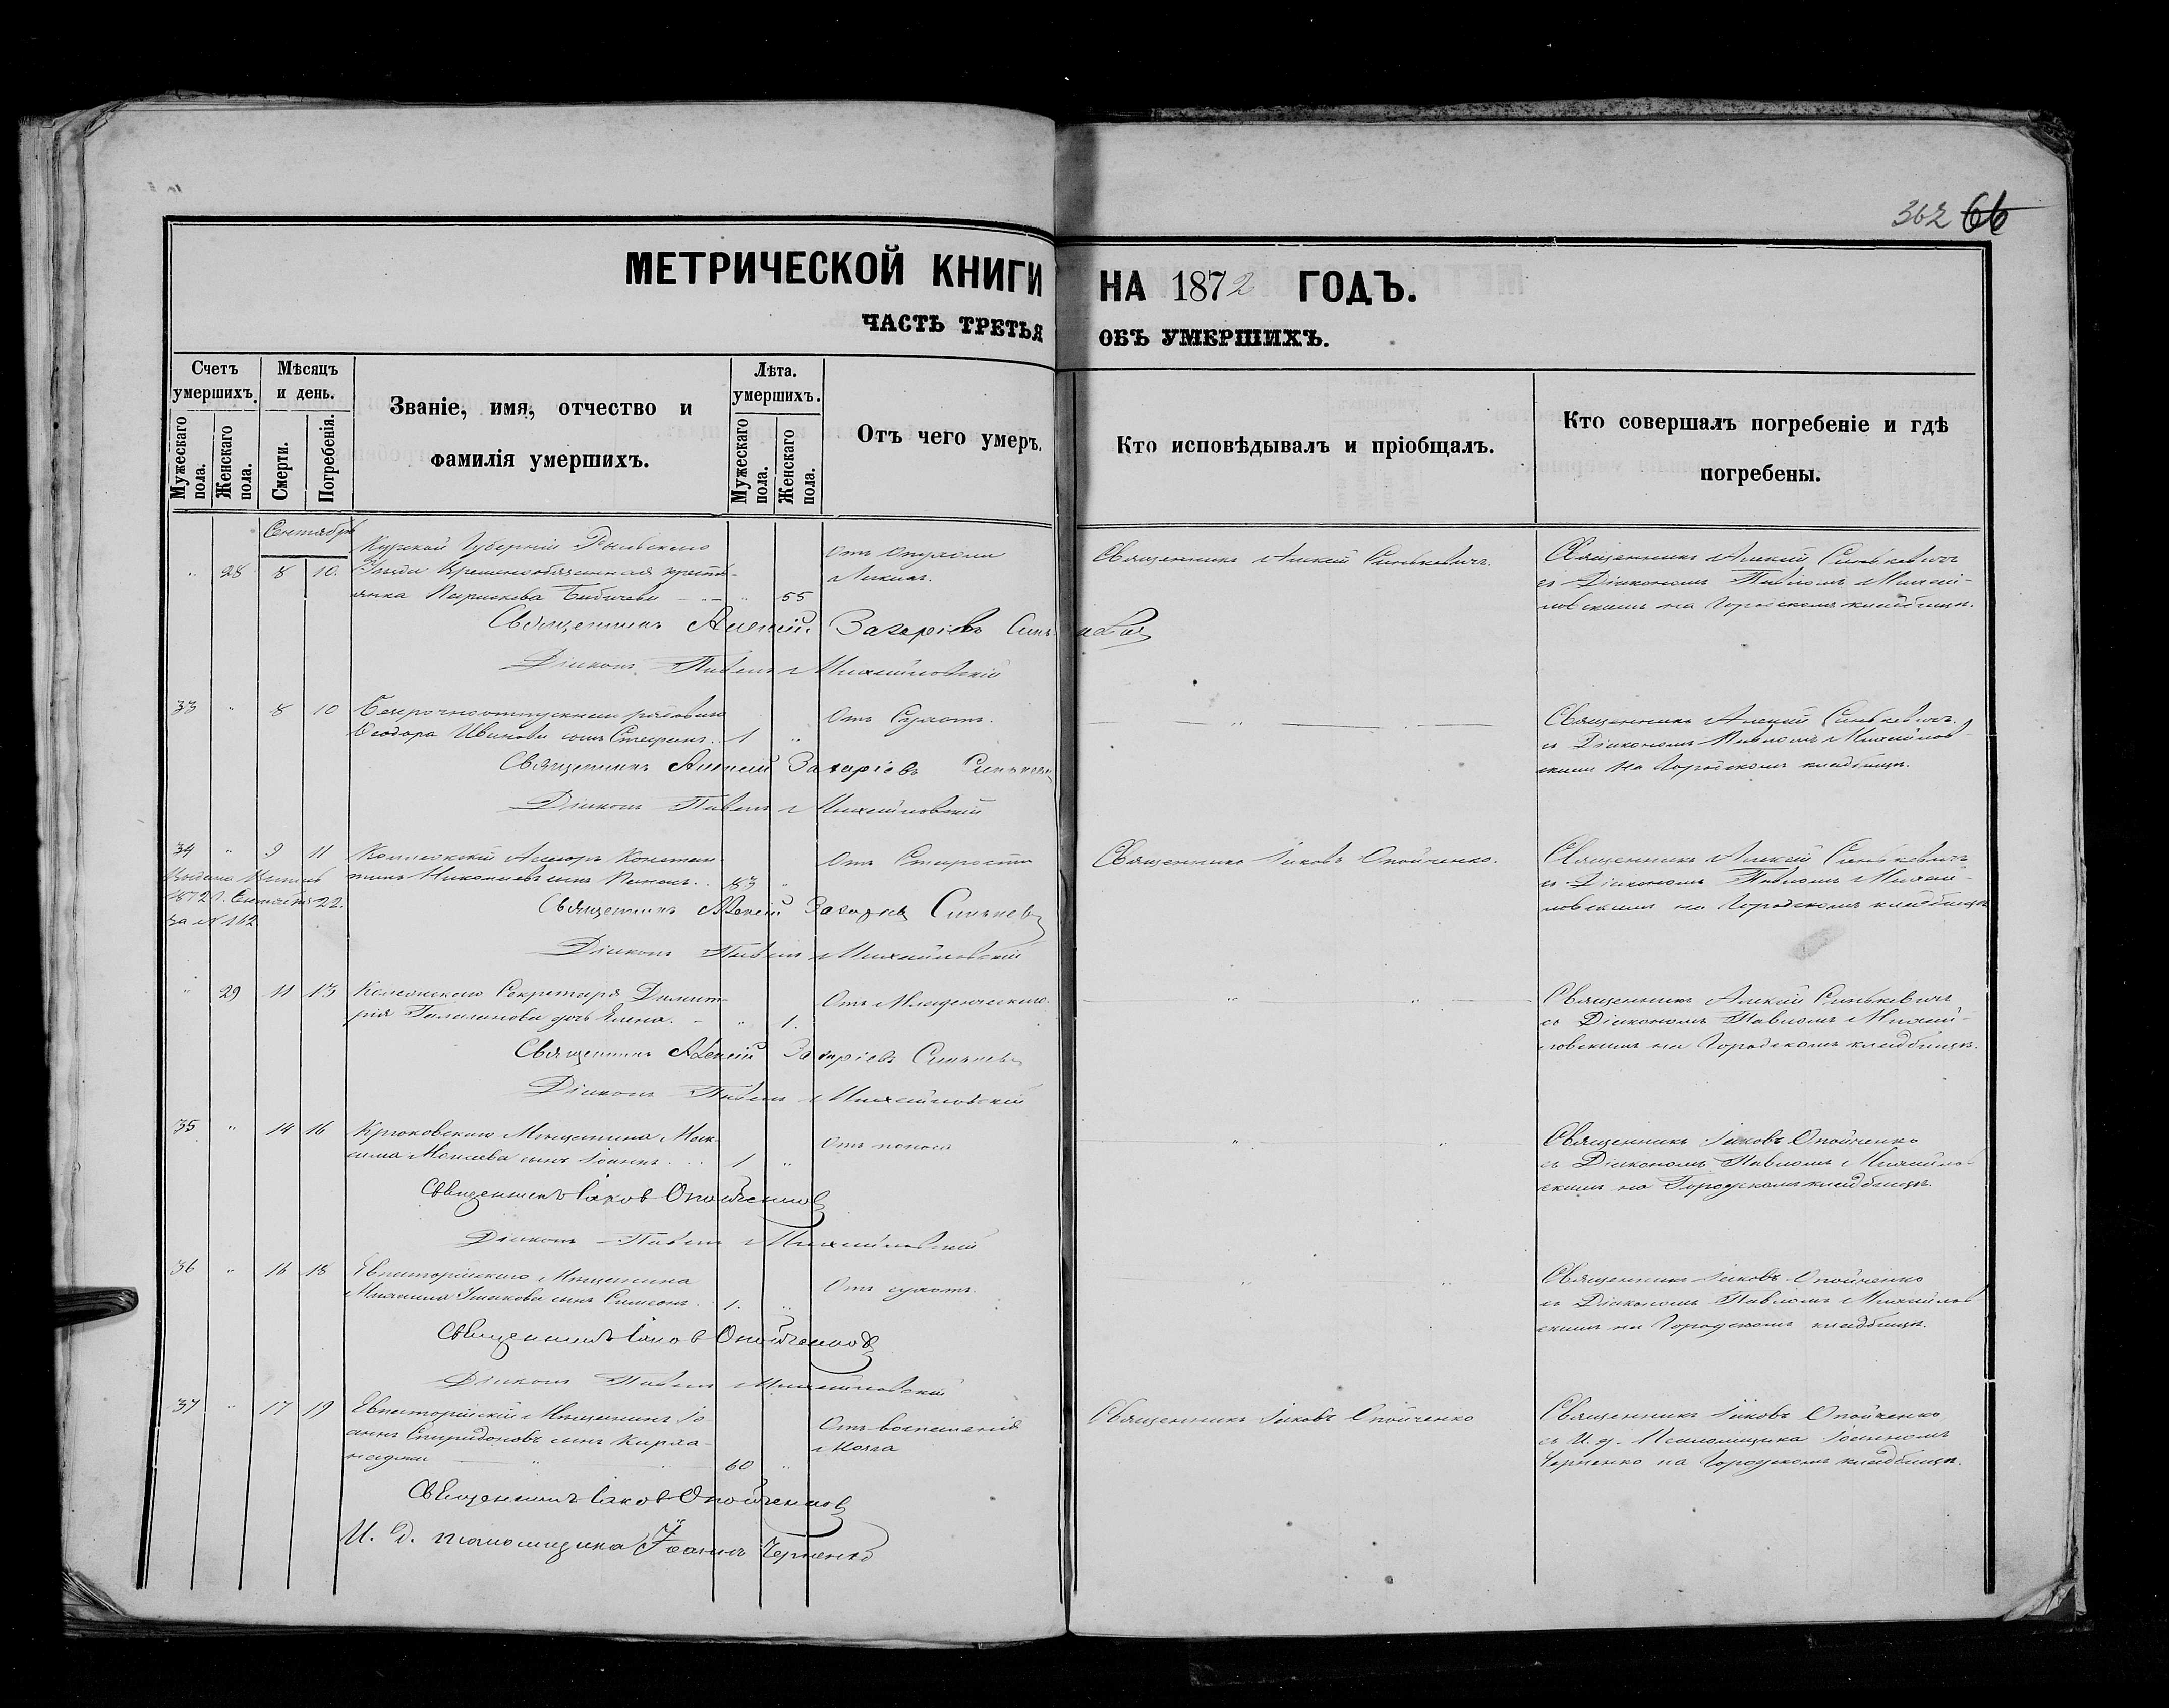 362 66
МЕТРИЧЕСКОЙ КНИГИ НА 1872 ГОДЪ.
ЧАСТЬ ТРЕТЬЯ ОБЪ УМЕРШИХЪ.
Счетъ умершихъ.
Мужескаго пола.
Женскаго пола.
Мѣсяцъ и день.
Смерти.
Погребенія.
Званіе, имя, отчество и фамилія умершихъ.
Лѣта. умершихъ.
Мужескаго пола.
Женскаго пола.
Отъ чего умеръ.
Кто исповѣдывалъ и пріобщалъ.
Кто совершалъ погребеніе и гдѣ погребены.
Сентябрь
" 28 8 10.
Курской Губерніи Рыльскаго
Уѣзда Временнообязанная кресть-
янка " 55
Отъ Опухоли
Священникъ Алексій Синькевичъ.
Священникъ Алексій Синькевичъ
съ Діакономъ Павломъ Михай-
ловскимъ на Городскомъ кладбищѣ.
Священникъ Алексій Захаріевъ Синькевичъ
Діаконъ Павелъ Михайловскій
33 " 8 10
Безсрочноотпускнаго рядоваго
Ѳеодора Иванова сынъ Стефанъ. 1 "
Отъ Сухотъ.
Священникъ Алексій Синькевичъ
съ Діакономъ Павломъ Михайлов
скимъ на Городскомъ кладбищѣ.
Священникъ Алексій Захаріевъ Синькевичъ
Діаконъ Павелъ Михайловскій
34 " 9 11
Коллежскій Ассесоръ Констан-
тинъ Николаевъ сынъ 83 "
Отъ Старости
Священникъ Іаковъ Опойченко.
Священникъ Алексій Синькевичъ
съ Діакономъ Павломъ Михай-
ловскимъ на Городскомъ кладбищѣ
1872 г. Сентября 22.
за № 162
Священникъ Алексій Захаріевъ Синькевичъ
Діаконъ Павелъ Михайловскій
" 29 11 13
Коллежскаго Секретаря Димит-
рія дочь Елена. " 1.
Отъ Младенческаго.
Священникъ Алексій Синькевичъ
съ Діакономъ Павломъ Михай-
ловскимъ на Городскомъ кладбищѣ.
Священникъ Алексій Захаріевъ Синькевичъ
Діаконъ Павелъ Михайловскій
35 " 14 16
Крюковскаго Мѣщанина Мак-
сима Моисеева сынъ Іоаннъ. 1 "
Отъ поноса
Священникъ Іаковъ Опойченко
съ Діакономъ Павломъ Михайлов
скимъ на Городскомъ кладбищѣ.
Священникъ Іаковъ Опойченко
Діаконъ Павелъ Михайловскій
36 " 16 18
Евпаторійскаго Мѣщанина
Михаила Ушакова сынъ Симеонъ. 1. "
Отъ сухотъ
Священникъ Іаковъ Опойченко
съ Діакономъ Павломъ Михайлов
скимъ на Городскомъ кладбищѣ.
Священникъ Іаковъ Опойченко
Діаконъ Павелъ Михайловскій
37 " 17 19
Евпаторійскій Мѣщанинъ Іо
аннъ Спиридоновъ сынъ 60 "
Отъ воспаленія
Мозга
Священникъ Іаковъ Опойченко
Священникъ Іаковъ Опойченко
съ И. д. Псаломщика Іоанномъ
Черненко на Городскомъ кладбищѣ.
Священникъ Іаковъ Опойченко
И. д. псаломщика Іоаннъ Черненко